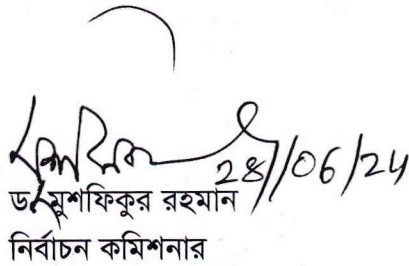 28/06/24
ড. মুশফিকুর রহমান
নির্বাচন কমিশনার